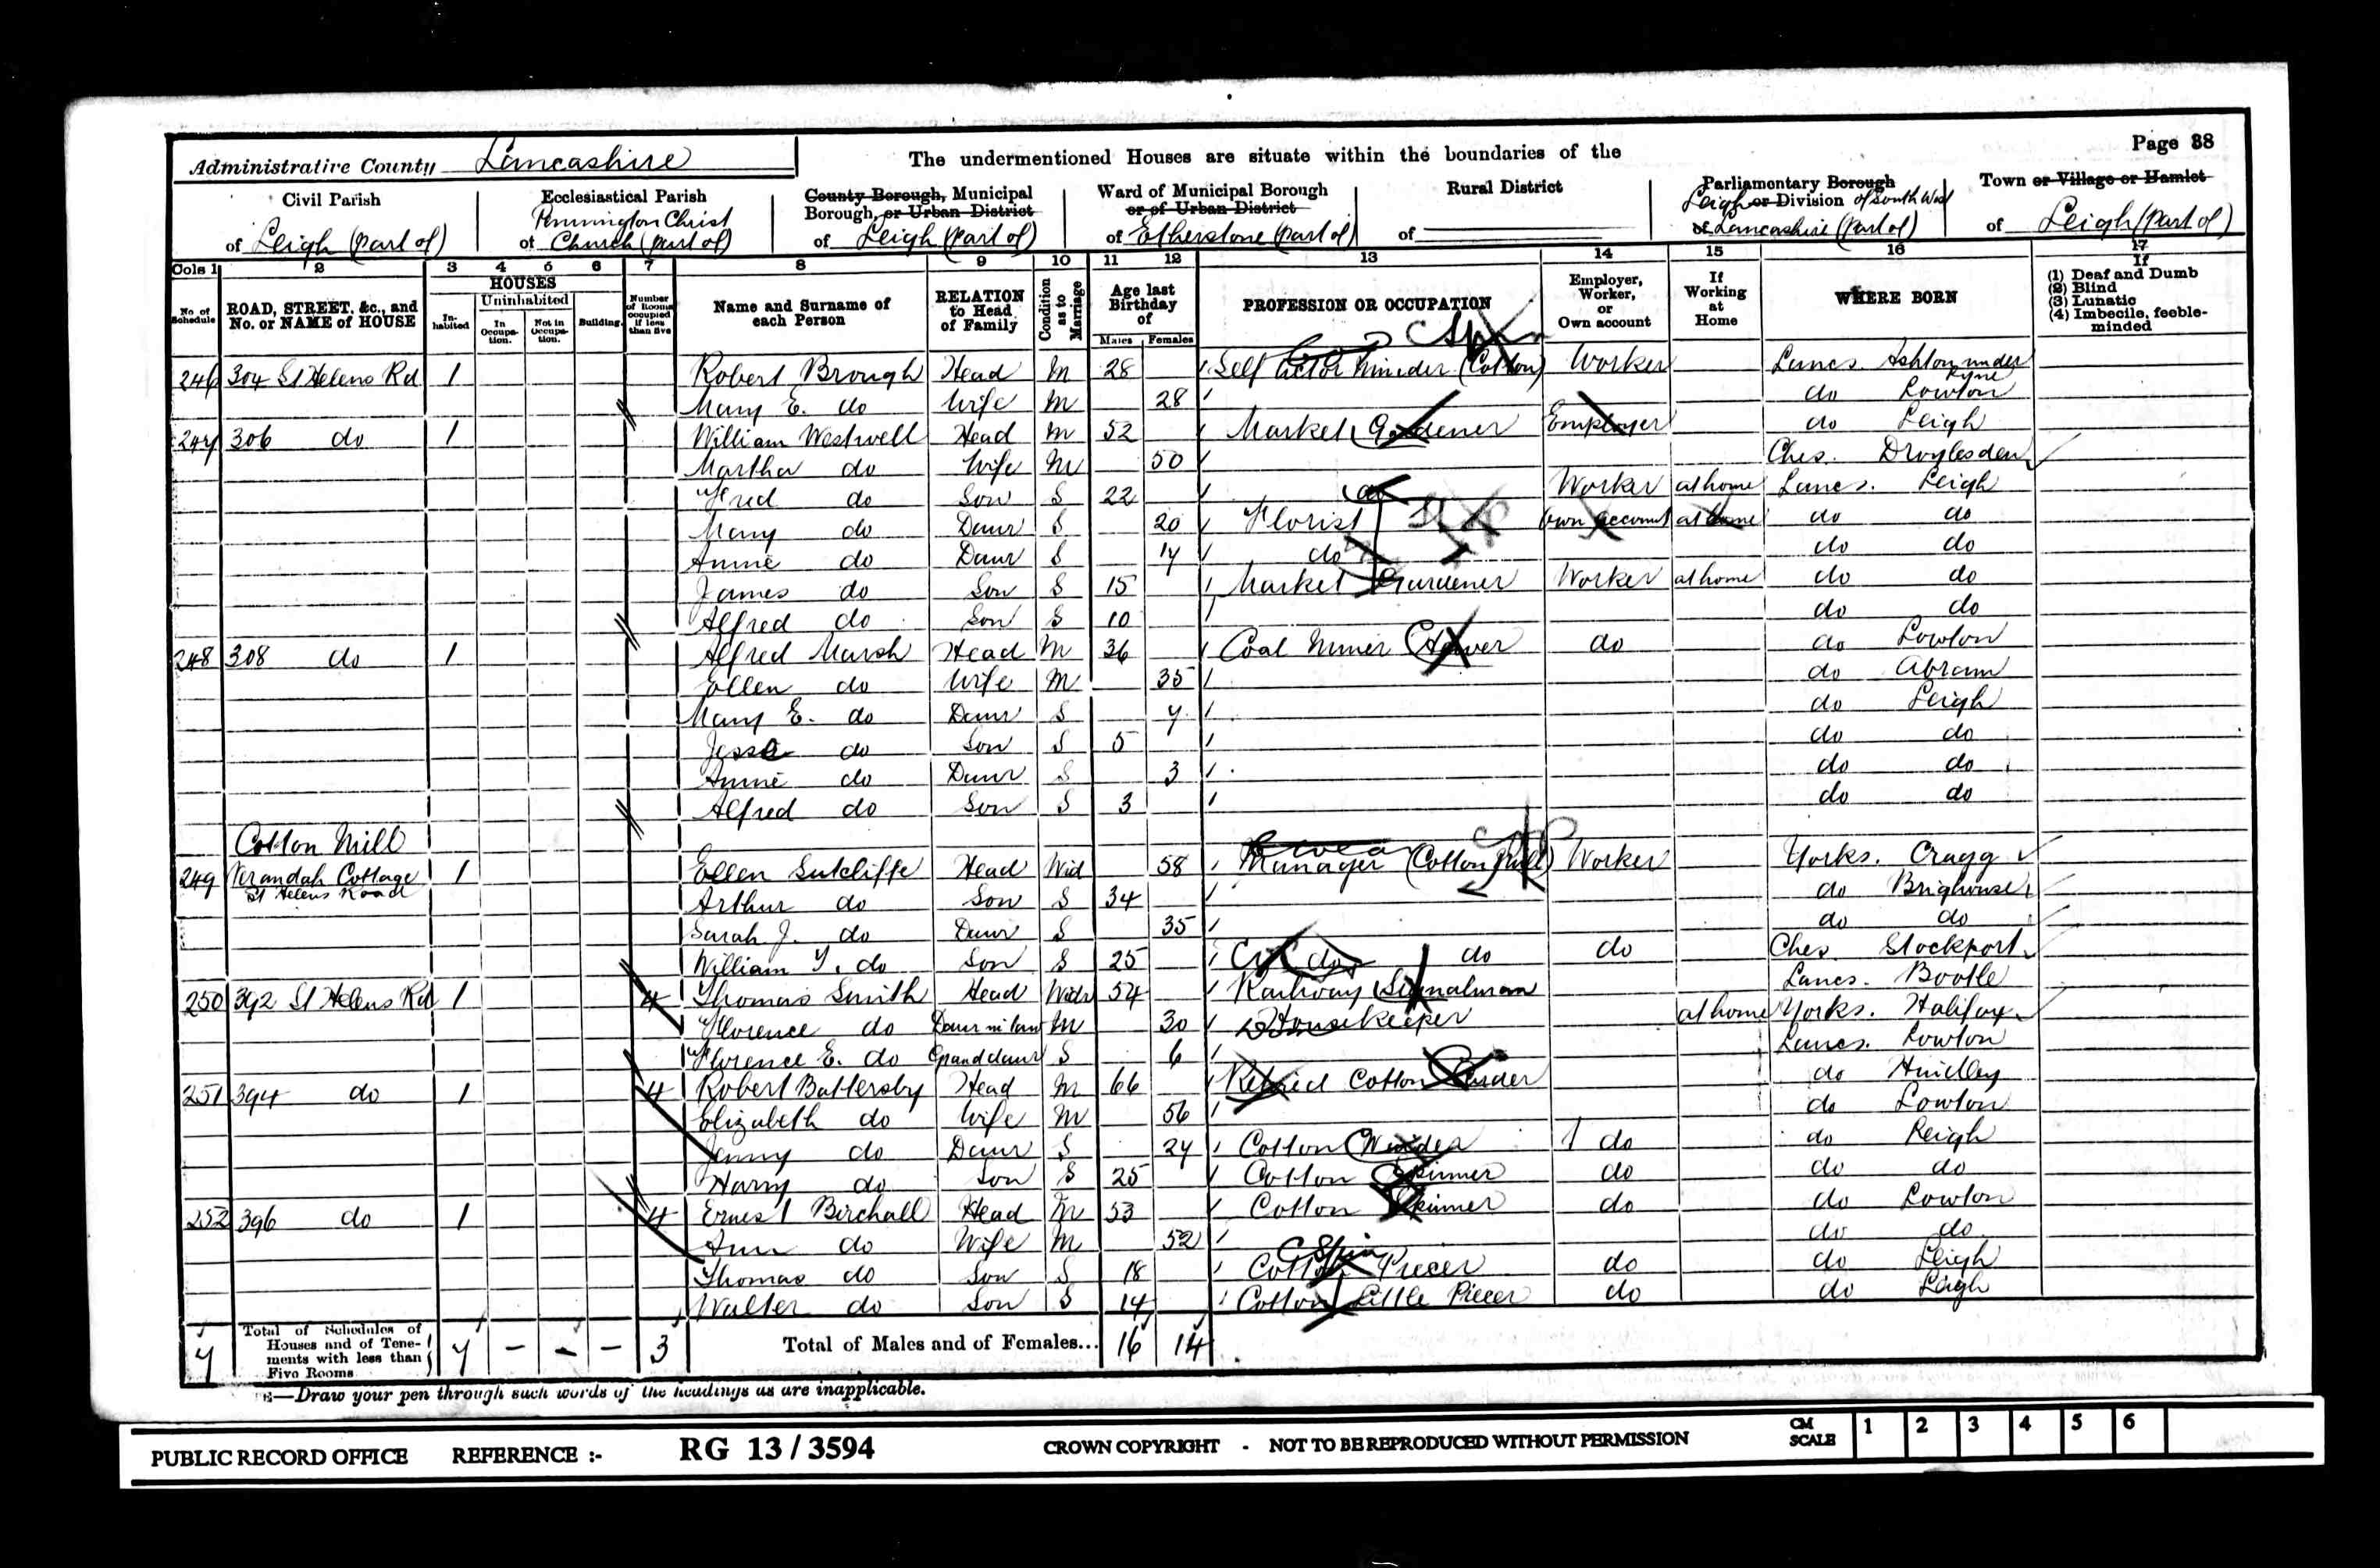 Page 38
Administrative County Lancashire
The undermentioned Houses are situate within the boundaries of the
Civil Parish of Leigh (part of)
Ecclesiastical Parish of Pennington Christ Church (part of)
County Borough, Municipal Borough, or Urban District of Leigh (part of)
Ward of Municipal Borough or of Urban District of Etherstone (part of)
Rural District of
Parliamentary Borough or Division of Leigh of South West Lancashire (part of)
Town or Village or Hamlet of Leigh (part of)
Cols 1 2 3 4 5 6 7 8 9 10 11 12 13 14 15 16 17
No of Schedule
ROAD, STREET, &c., and No. or NAME of HOUSE
HOUSES
Inhabited
Uninhabited
In Occupation.
Not in Occupation.
Building.
Number of Rooms occupied if less than five
Name and Surname of each Person
RELATION to Head of Family
Condition as to Marriage
Age last Birthday of
Males Females
PROFESSION OR OCCUPATION
Employer, Worker, or Own account
If Working at Home
WHERE BORN
If (1) Deaf and Dumb (2) Blind (3) Lunatic (4) Imbecile, feeble-minded
246 304 St Helens Rd 1 Robert Brough Head M 28 Self Actor Minder (Cotton) Worker Lancs. Ashton under Lyne
Mary E. do Wife M 28 do Lowton
247 306 do 1 William Westwell Head M 52 Market Gardener Employer do Leigh
Martha do Wife M 50 Ches. Droylesden
Fred do Son S 22 Worker at home Lancs. Leigh
Mary do Daur S 20 Florist Own account at home do do
Annie do Daur S 17 do do do
James do Son S 15 Market Gardener Worker at home do do
Alfred do Son S 10 do do
248 308 do 1 Alfred Marsh Head M 36 Coal Miner Hewer do do Lowton
Ellen do Wife M 35 do Abram
Mary E. do Daur S 7 do Leigh
Jesse do Son S 5 do do
Annie do Daur S 3 do do
Alfred do Son S 3 do do
Cotton Mill
249 Verandah Cottage St Helens Road 1 Ellen Sutcliffe Head Wid 58 Manager (Cotton Mill) Worker Yorks. Cragg
Arthur do Son S 34 do Brighouse
Sarah J. do Daur S 35 do do
William Y. do Son S 25 do do do Ches Stockport
250 392 St Helens Rd 1 4 Thomas Smith Head Widr 54 Railway Signalman Lancs. Bootle
Florence do Daur in law M 30 Housekeeper at home Yorks. Halifax
Florence E. do Granddaur S 6 Lancs. Lowton
251 394 do 1 4 Robert Battersby Head M 66 Retired Cotton do Hindley
Elizabeth do Wife M 56 do Lowton
Jenny do Daur S 27 Cotton Winder do do Leigh
Harry do Son S 25 Cotton Spinner do do do
252 396 do 1 4 Ernest Birchall Head M 53 Cotton Spinner do do Lowton
Ann do Wife M 52 do do
Thomas do Son S 18 Cotton Piecer do do Leigh
Walter do Son S 14 Cotton Little Piecer do do Leigh
7 Total of Schedules of Houses and of Tenements with less than Five Rooms 7 - - - 3 Total of Males and of Females... 16 14
—Draw your pen through such words of the headings as are inapplicable.
PUBLIC RECORD OFFICE REFERENCE :- RG 13 / 3594 CROWN COPYRIGHT - NOT TO BE REPRODUCED WITHOUT PERMISSION CM SCALE 1 2 3 4 5 6